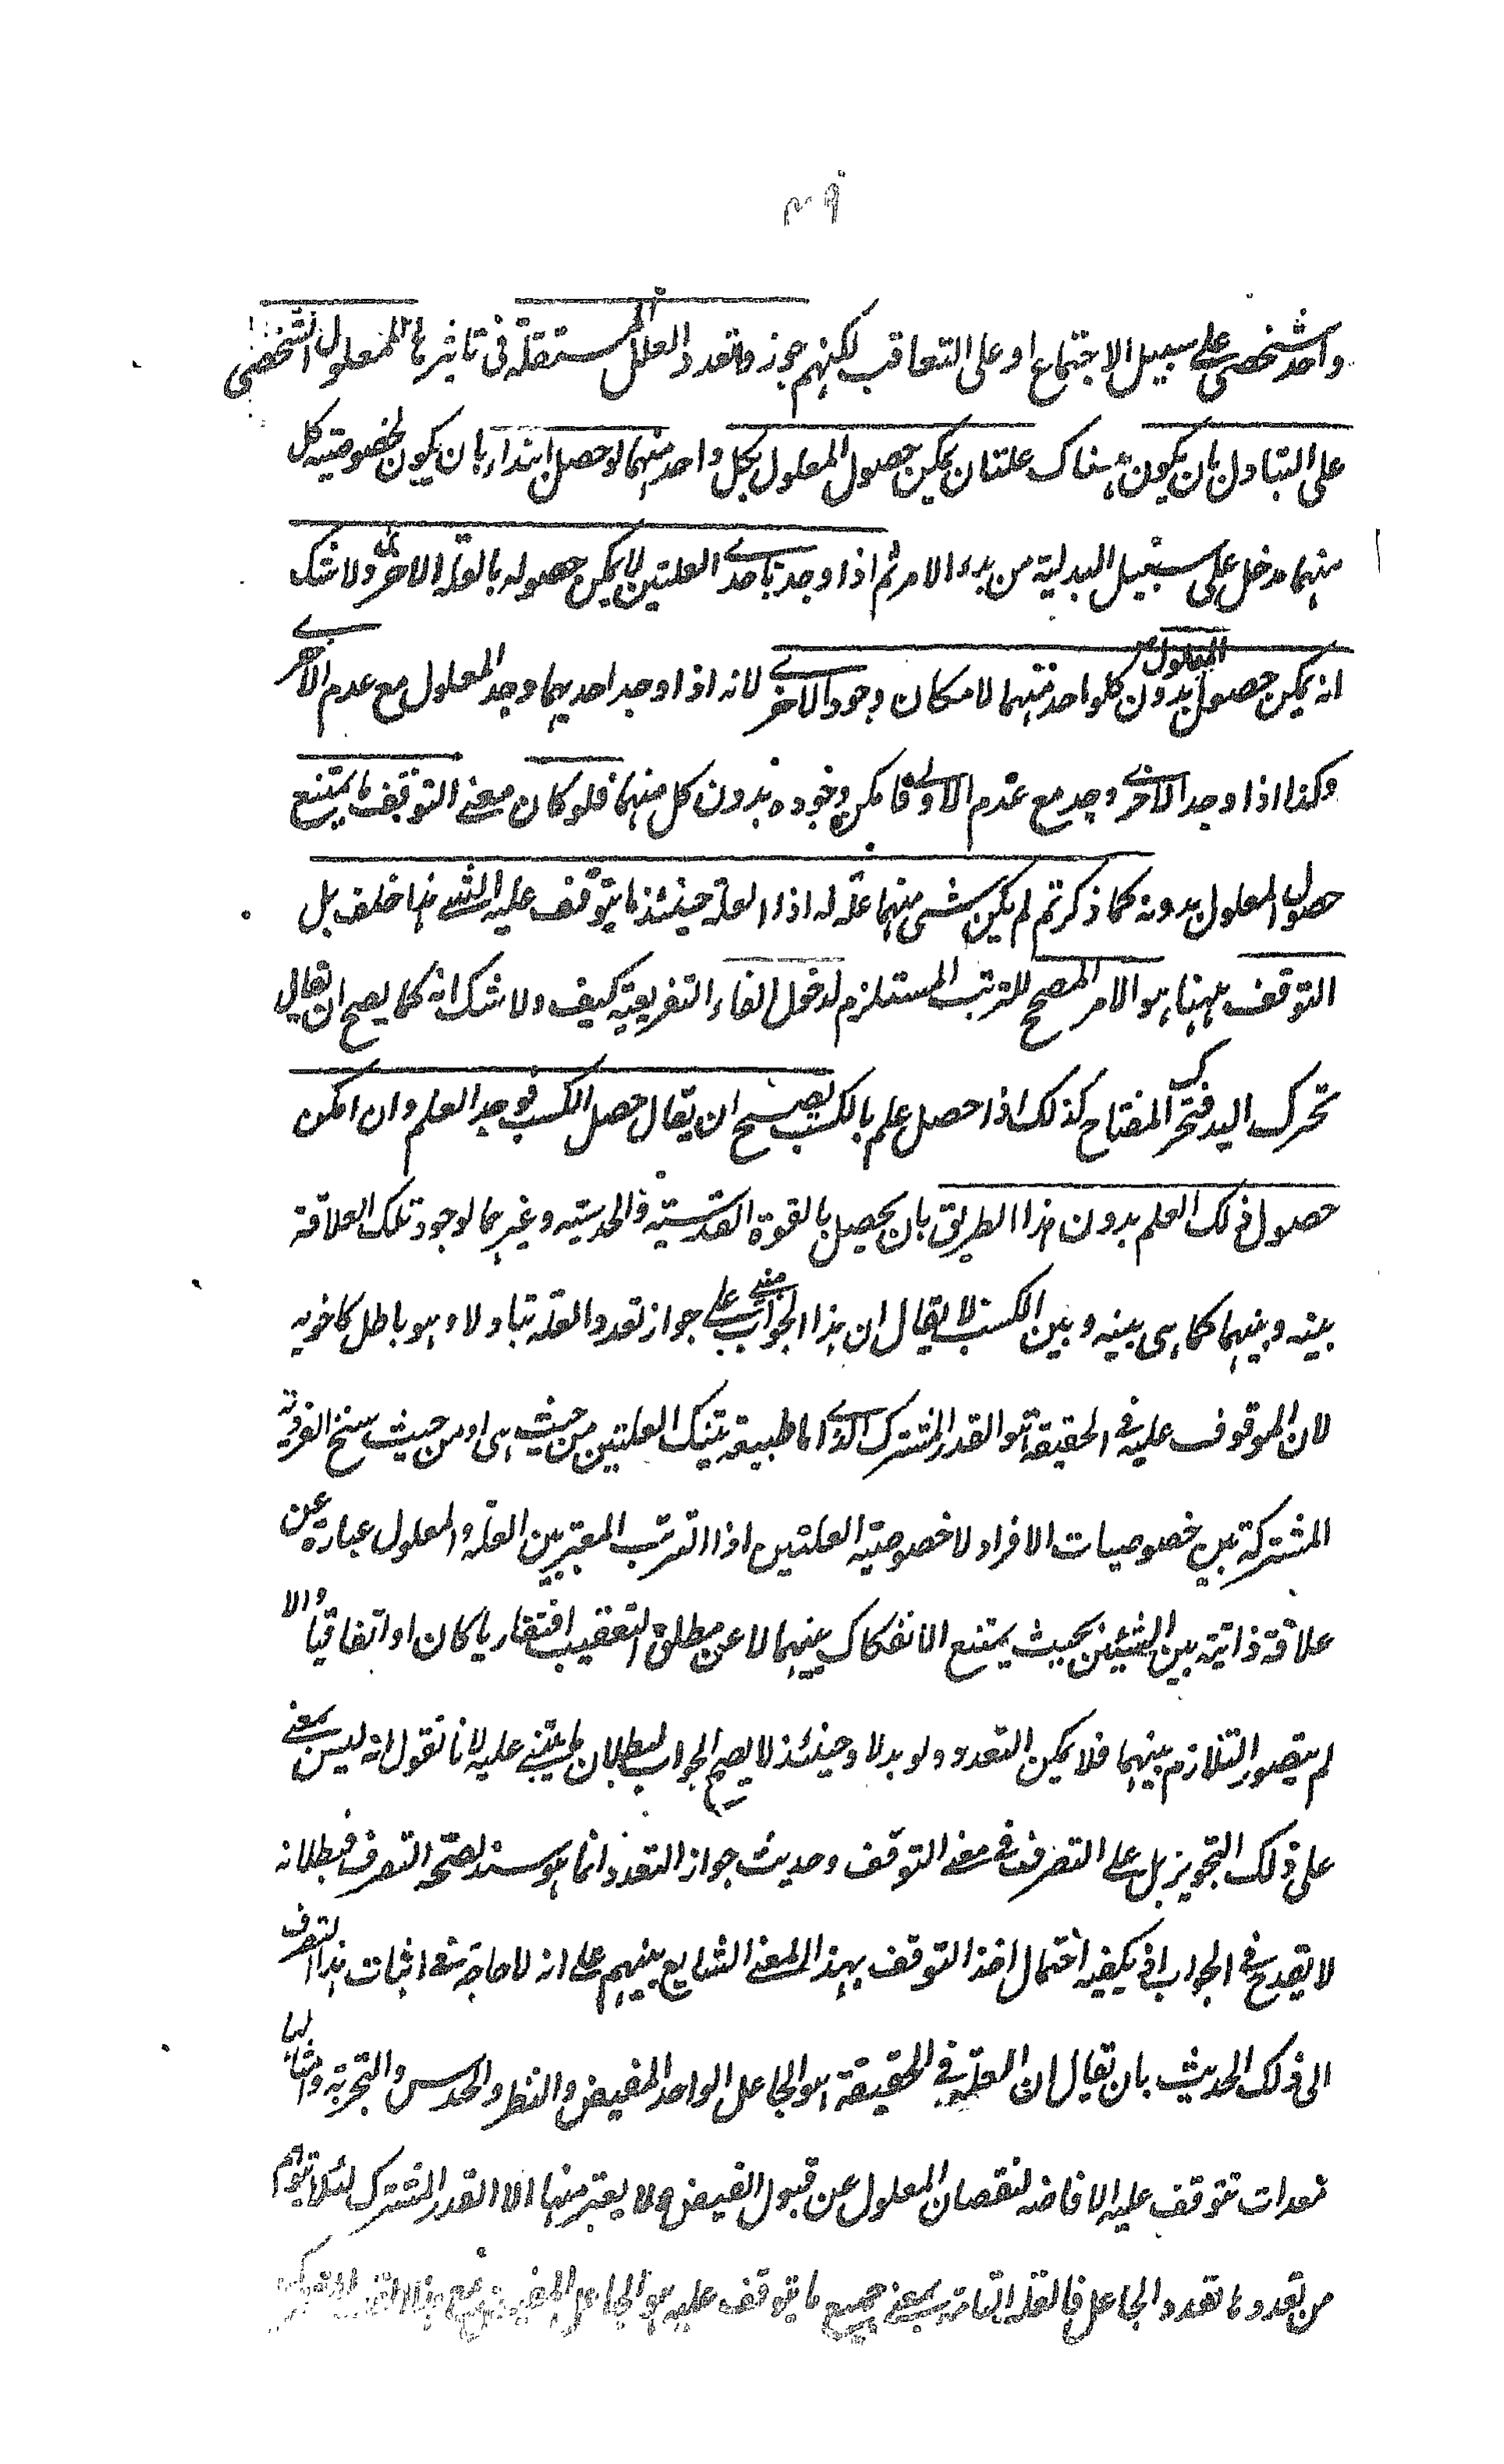 واحد شخصي على سبيل الاجتماع او على التعاقب لكنهم جوزوا تعدد العلل المستقلة في تاثيرها للمعلول الشخصي
على التبادل بان يكون هناك علتان يمكن حصول المعلول بكل واحد منهما لو حصل ابتداء بان يكون لخصوصية كل
منهما دخل على سبيل البدلية من بدء الامر ثم اذا وجد باحدى العلتين لا يمكن حصوله بالعلة الاخرى ولا شك
انه يمكن حصول المعلول بدون كل واحد منهما لامكان وجود الاخرى لانه اذا وجد احدهما وجد المعلول مع عدم الاخرى
وكذا اذا وجد الاخرى وجد مع عدم الاولى فامكن وجوده بدون كل منهما فلو كان معنى التوقف ما يمتنع
حصول المعلول بدونه كما ذكرتم لم يكن شئ منهما علة له اذا العلة حينئذ ما يتوقف عليه الشئ هذا خلف بل
التوقف ههنا هو الامر المصحح للترتب المستلزم لدخول الفاء التفريعية كيف ولا شك انه كما يصح ان يقال
تحرك اليد فتحرك المفتاح كذلك اذا حصل علم بالكسب يصح ان يقال حصل الكسب فوجد العلم وان امكن
حصول ذلك العلم بدون هذا الطريق بان يحصل بالقوة القدسية والحدسية وغيرهما لوجود تلك العلاقة
بينه وبينهما كما هي بينه وبين الكسب لا يقال ان هذا الجواب مبني على جواز تعدد العلة تبادلا وهو باطل كاخويه
لان الموقوف عليه في الحقيقة هو القدر المشترك اما طبيعة تينك العلتين من حيث هي او من حيث سنخ الفردية
المشتركة بين خصوصيات الافراد لا خصوصية العلتين اذا الترتب المعتبر بين العلة والمعلول عبارة عن
علاقة ذاتية بين الشيئين بحيث يمتنع الانفكاك بينهما لا عن مطلق التعقيب افتقاريا كان او اتفاقيا والا
لم يتصور التلازم بينهما فلا يمكن التعدد ولو بدلا وحينئذ لا يصح الجواب لبطلان ما يبتني عليه لانا نقول انه ليس بمعنى
على ذلك التجويز بل على التصرف في معنى التوقف وحديث جواز التعدد انما هو سند لصحة التصرف فبطلانه
لا يقدح في الجواب اذ يكفيه احتمال اخذ التوقف بهذا المعنى الشايع بينهم على انه لا حاجة في اثبات هذا التصرف
الى ذلك الحديث بان يقال ان العلة في الحقيقة هو الجاعل الواحد المفيض والنظر والحدس والتجربة وامثالها
معدات تتوقف عليه الافاضة لنقصان المعلول عن قبول الفيض ولا يعتبر منها الا القدر المشترك لئلا يتوهم
من تعددها تعدد الجاعل فالعلة التامة بمعنى جميع ما يتوقف عليه هو الجاعل المفيض مع